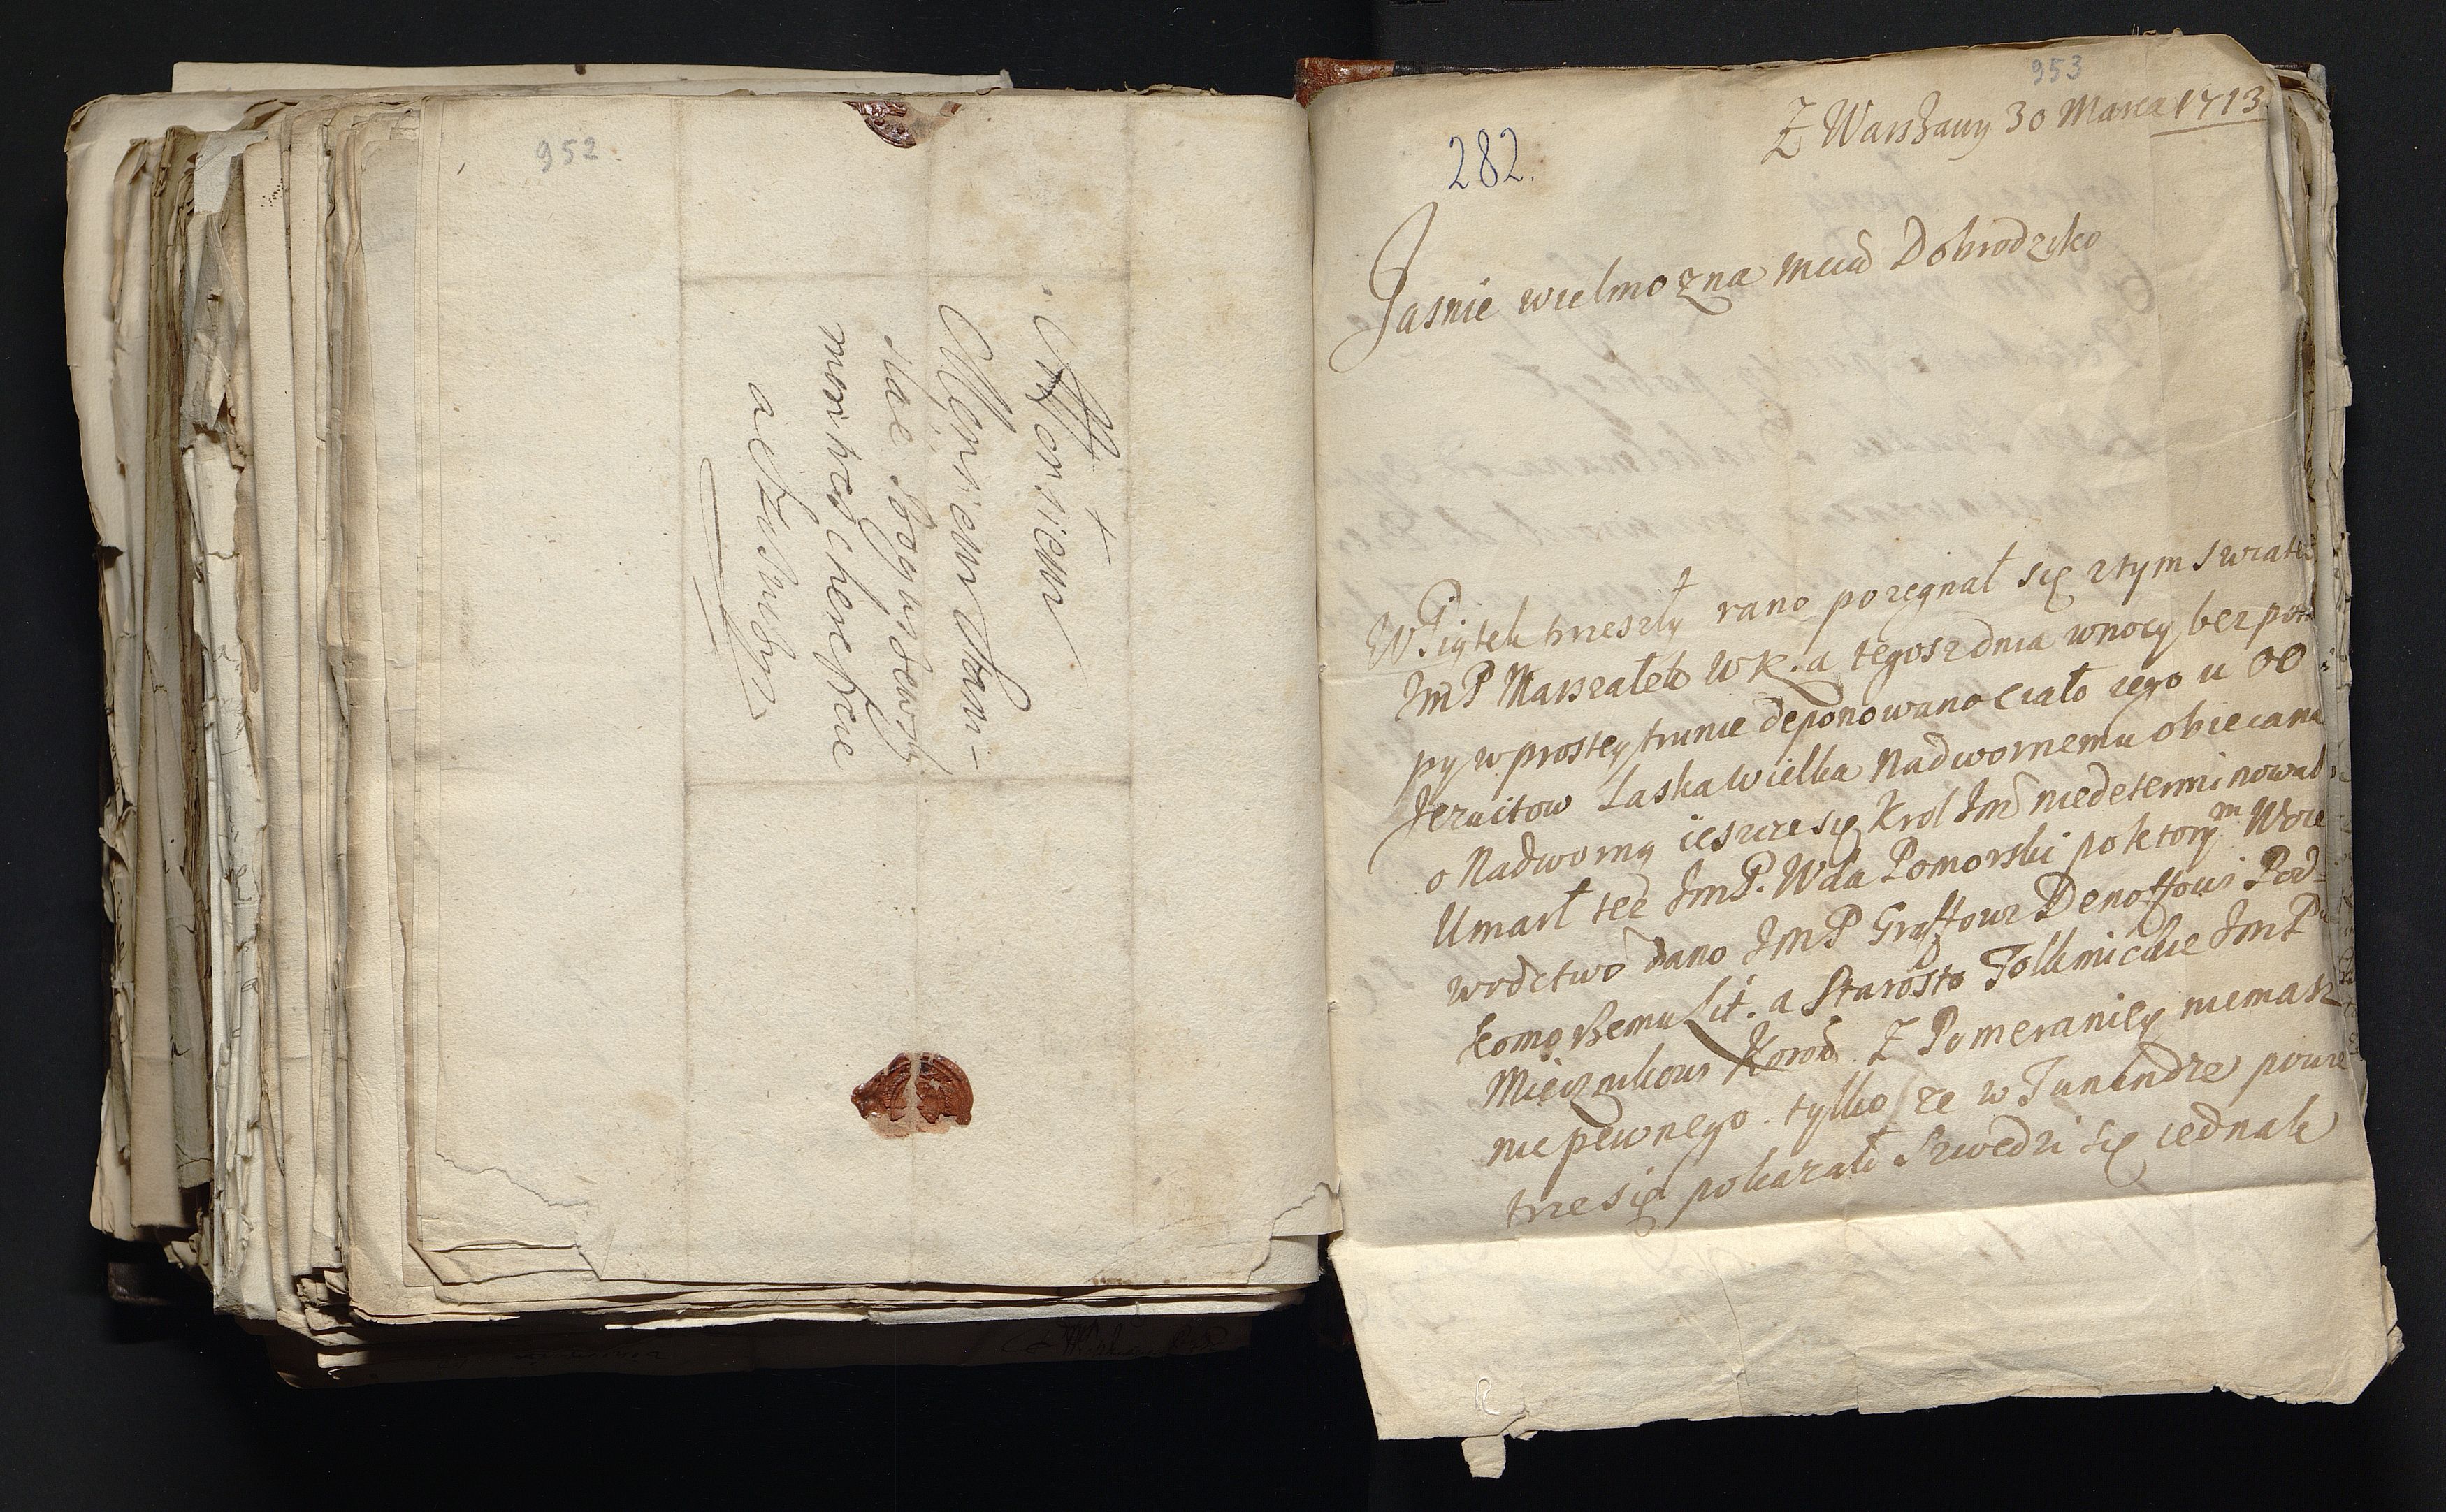 952.
A Monsieur
Monsieur Stani-
slae
mon tres cher
a
953
Z Warszawy 30 Marca 1713
282.
Jasnie wielmozna mcia Dobrodziko
W Piątek przeszły rano pozegnał się z tym swiatē
Jm P Marszałek WK. a tegosz dnia wnocy bez pom
py w prostey trunie deponowano Ciało iego u OO
Jezuitow Laska Wielka Nadwornemu obiecana
o Nadworną ieszcze się Krol Jm niedeterminował
Umarł tez JmP. Wda Pomorski po ktorym Woie
wodctwo dano JmP Graffowi Denoffowi Pod=
komorzemu Lit. a Starosto Tolkmickie JmP
Miecznikowi Koron. Z Pomeraniey niemasz
nic pewnego. tylko ze w powie
trze się pokazało Szwedzi się iednak